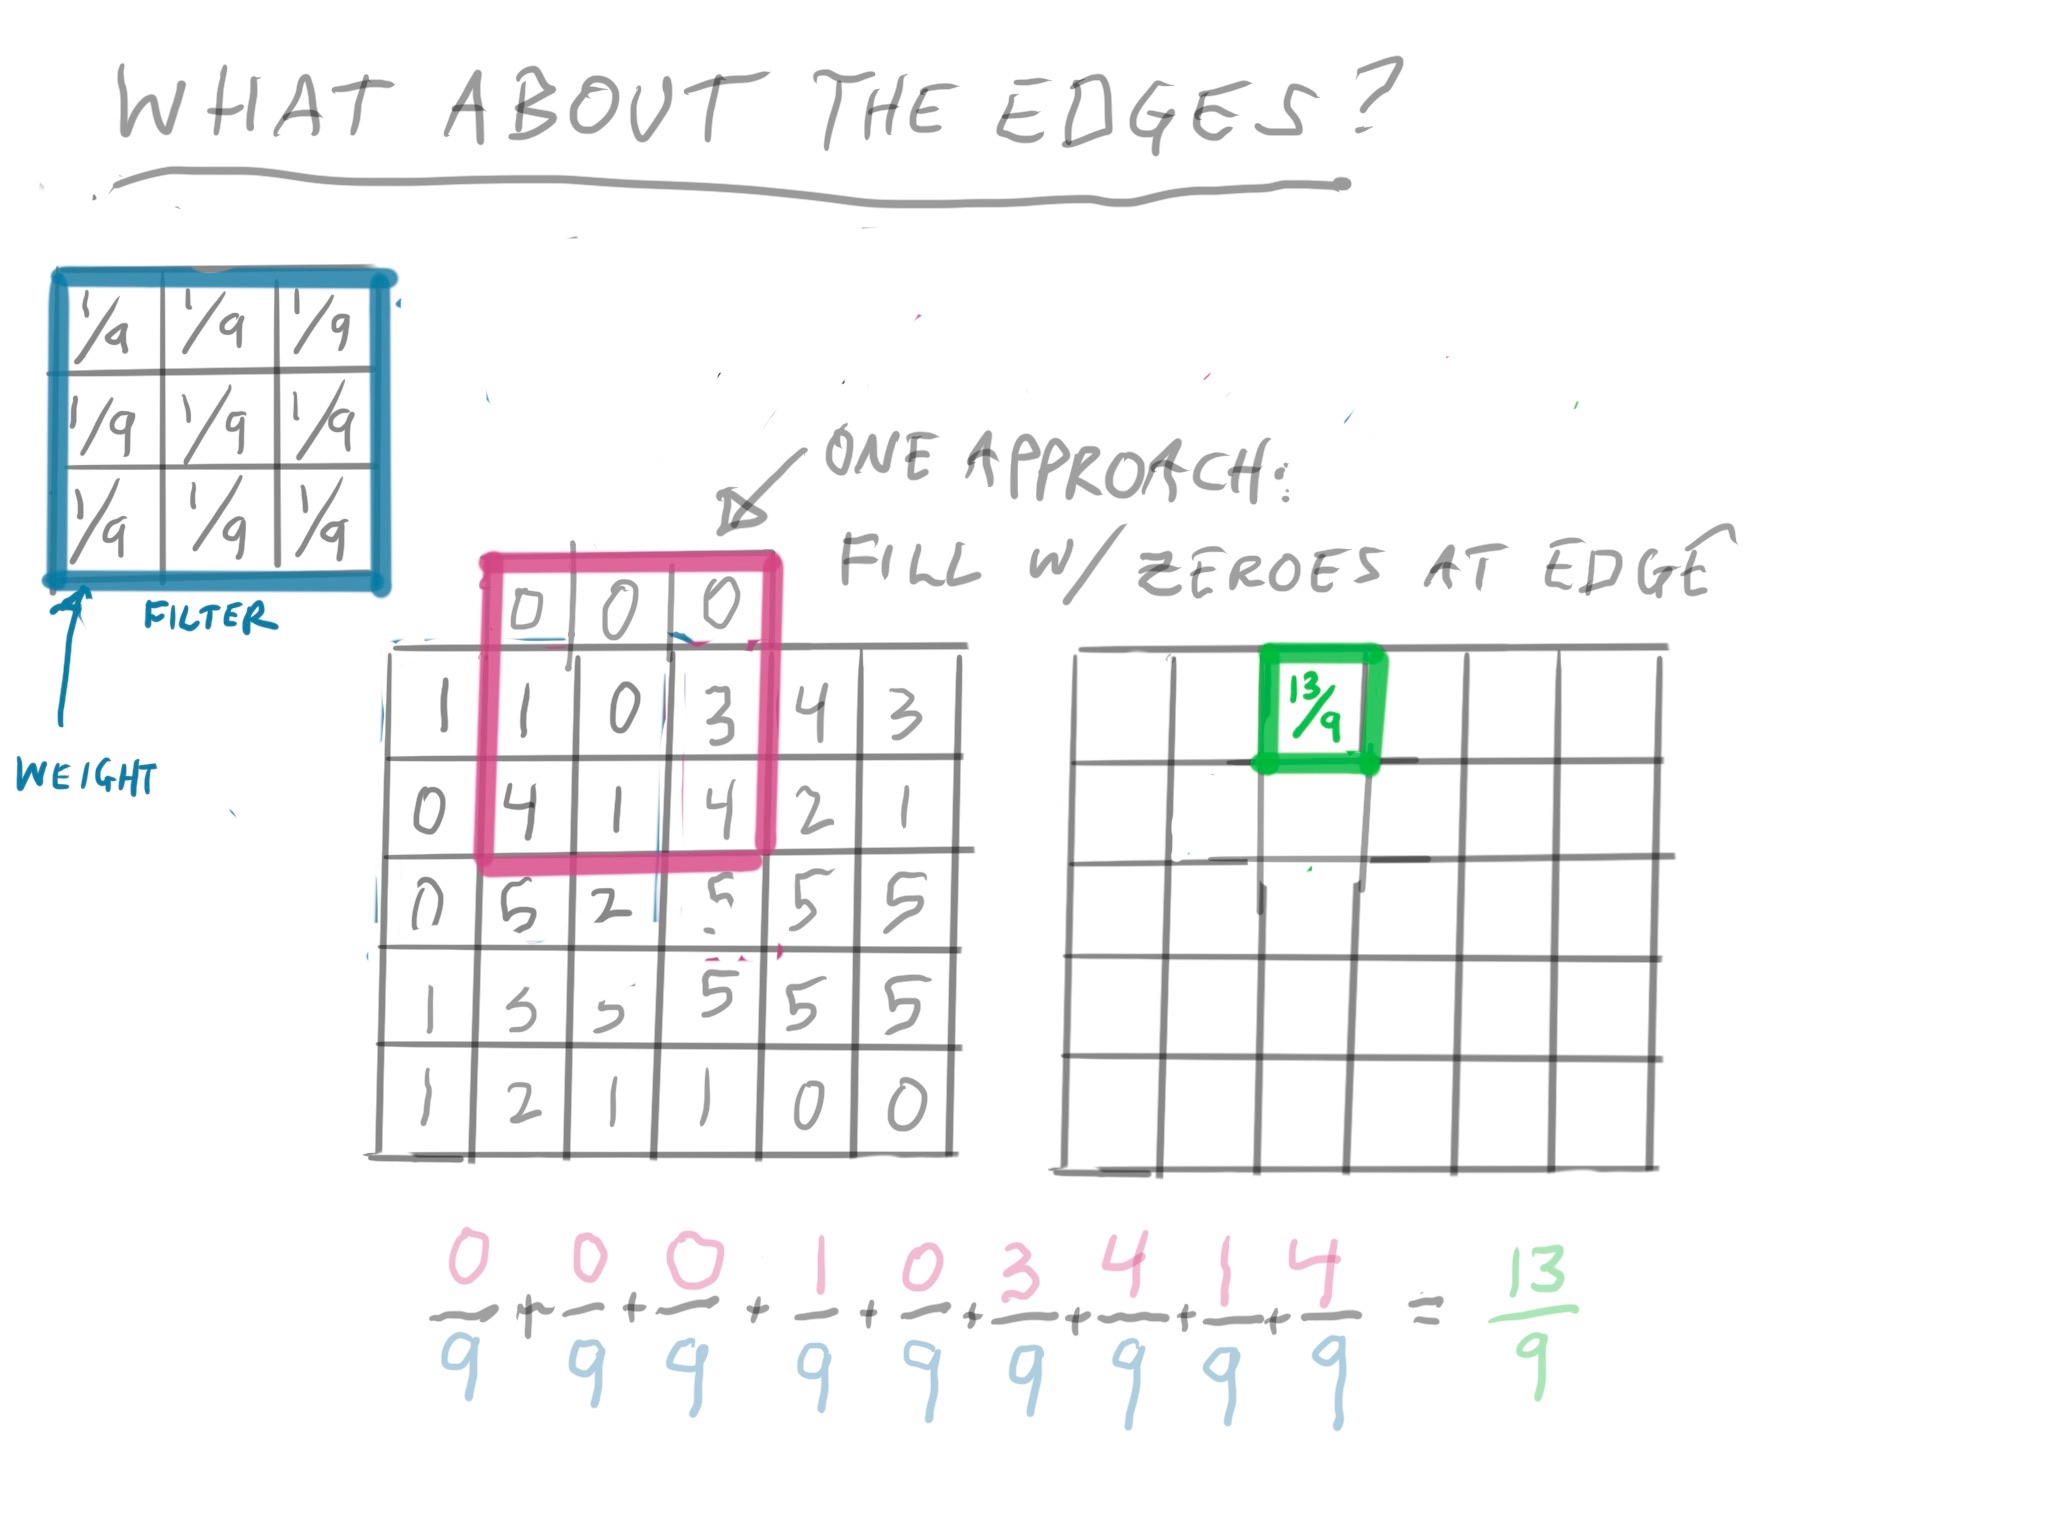 WHAT ABOUT THE EDGES?
1/9 1/9 1/9
1/9 1/9 1/9
1/9 1/9 1/9
FILTER
WEIGHT
ONE APPROACH:
FILL W/ ZEROES AT EDGE
0 0 0
1 1 0 3 4 3
0 4 1 4 2 1
0 5 2 5 5 5
1 5 5 5 5 5
1 2 1 1 0 0
13/9
0/9 + 0/9 + 0/9 + 1/9 + 0/9 + 3/9 + 4/9 + 1/9 + 4/9 = 13/9